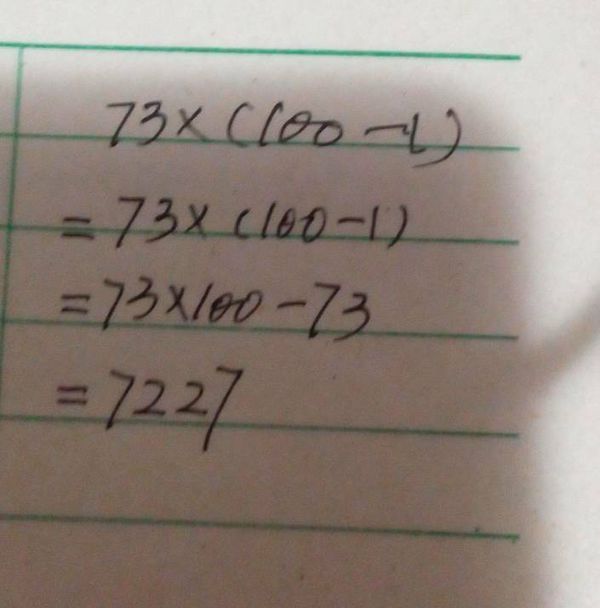 73×(100-1)
=73×(100-1)
=73×100-73
=7227